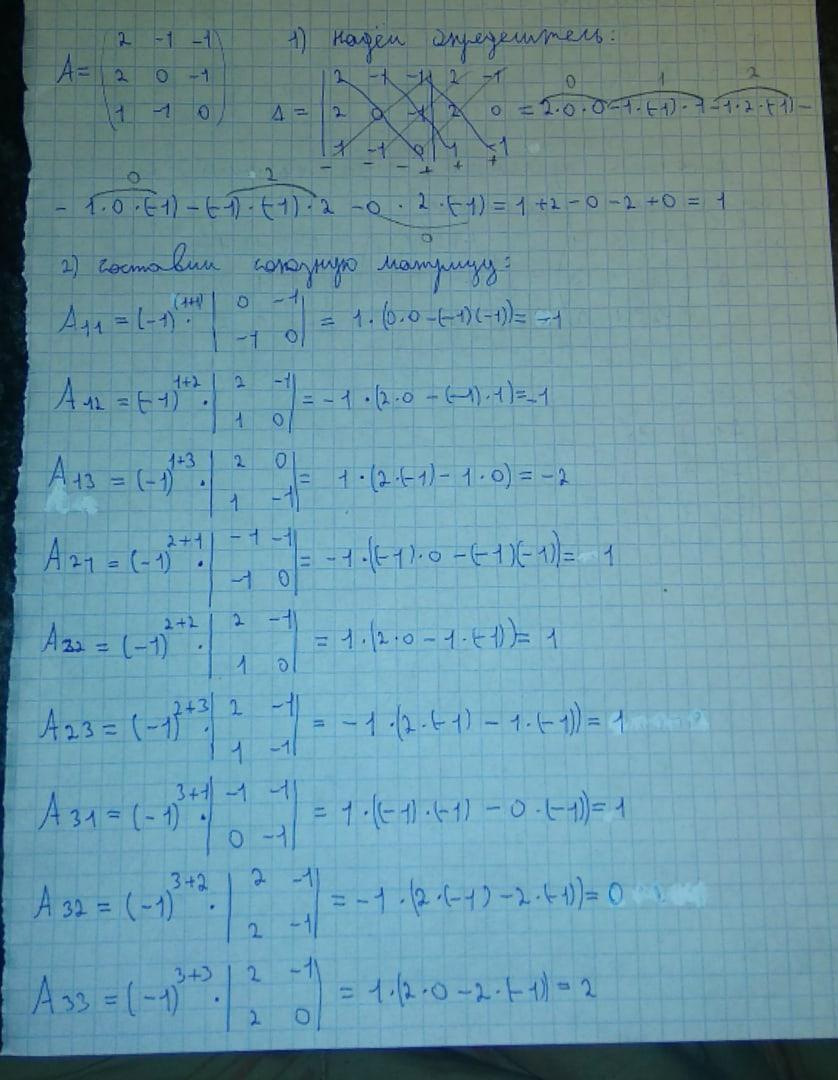 1) найдём определитель:
A = ( 2 -1 -1
2 0 -1
1 -1 0 )
Δ = | 2 -1 -1 | 2 -1
2 0 -1 | 2 0
1 -1 0 | 1 -1
- - - + + +
0 1 2
= 2·0·0-1·(-1)·1-1·2·(-1)-
0 2
- 1·0·(-1) - (-1)·(-1)·2 -0 · 2·(-1) = 1+2-0-2+0 = 1
0
2) составим союзную матрицу:
A11 = (-1)^(1+1) · | 0 -1 ; -1 0 | = 1·(0·0-(-1)(-1))= -1
A12 = (-1)^1+2 · | 2 -1 ; 1 0 | = -1·(2·0-(-1)·1)=-1
A13 = (-1)^1+3 · | 2 0 ; 1 -1 | = 1·(2·(-1)-1·0) = -2
A21 = (-1)^2+1 · | -1 -1 ; -1 0 | = -1·((-1)·0-(-1)(-1))= 1
A22 = (-1)^2+2 · | 2 -1 ; 1 0 | = 1·(2·0-1·(-1))= 1
A23 = (-1)^2+3 · | 2 -1 ; 1 -1 | = -1·(2·(-1) - 1·(-1)) = 1
A31 = (-1)^3+1 · | -1 -1 ; 0 -1 | = 1·((-1)·(-1) - 0·(-1))= 1
A32 = (-1)^3+2 · | 2 -1 ; 2 -1 | = -1·(2·(-1)-2·(-1))= 0
A33 = (-1)^3+3 · | 2 -1 ; 2 0 | = 1·(2·0-2·(-1)) = 2